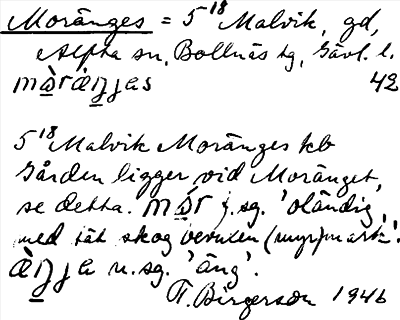 Moränges = 5¹⁸ Malvik, gd,
Alfta sn, Bollnäs tg, Gävl. l.
42
5¹⁸ Malvik Moränges kb
Gården ligger vid Moränget,
se detta. j. sg. 'oländig,
med tät skog bevuxen (myr)mark'.
n. sg. 'äng'.
F. Birgerson 1946